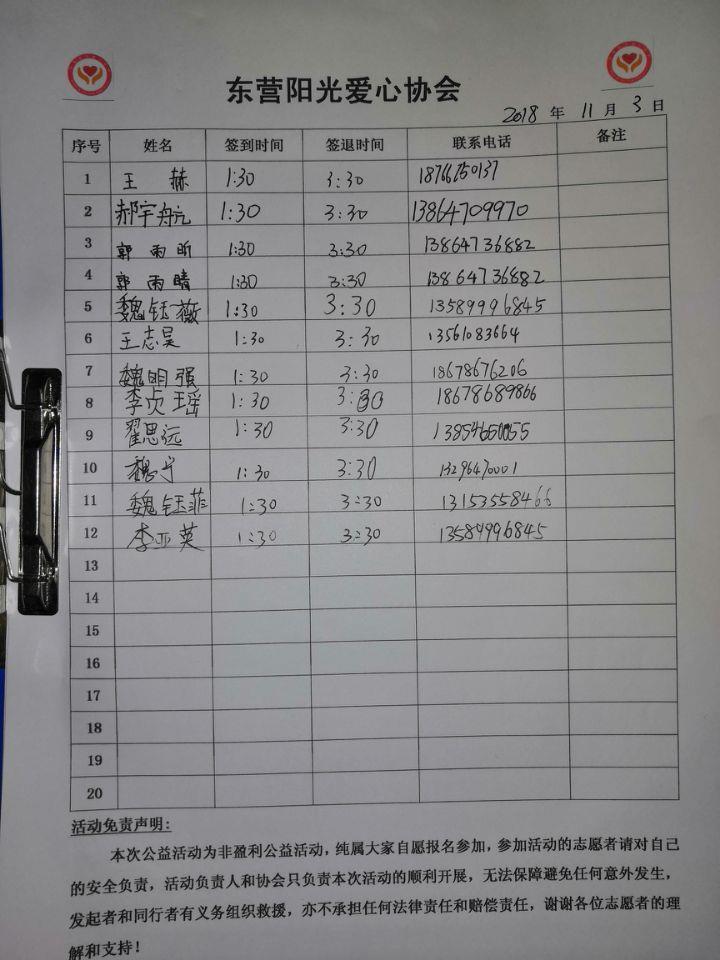 东营阳光爱心协会
2018 年 11 月 3 日
序号 姓名 签到时间 签退时间 联系电话 备注
1 王赫 1:30 3:30 18766750137
2 郝宇航 1:30 3:30 13864709970
3 郭雨昕 1:30 3:30 13864736882
4 郭雨晴 1:30 3:30 13864736882
5 魏钰薇 1:30 3:30 13589996845
6 王志昊 1:30 3:30 13561083664
7 魏明强 1:30 3:30 18678676206
8 李贞瑶 1:30 3:30 18678689866
9 翟思远 1:30 3:30
10 魏宁 1:30 3:30 13296470001
11 魏钰菲 1:30 3:30 13153558466
12 李亚英 1:30 3:30 13589996845
13
14
15
16
17
18
19
20
活动免责声明:
本次公益活动为非盈利公益活动，纯属大家自愿报名参加，参加活动的志愿者请对自己
的安全负责，活动负责人和协会只负责本次活动的顺利开展，无法保障避免任何意外发生，
发起者和同行者有义务组织救援，亦不承担任何法律责任和赔偿责任，谢谢各位志愿者的理
解和支持！